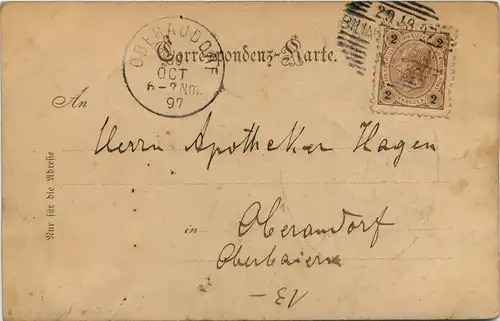 OBERAUDORF
OCT
6-7Nm.
97
Correspondenz-Karte.
2 2
2 2
An
Herrn Apotheker Hagen
in Oberaudorf
Oberbaiern
Nur für die Adresse